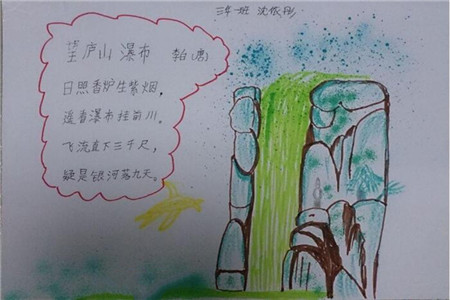 三年一班 沈依彤
望庐山瀑布 李白(唐)
日照香炉生紫烟,
遥看瀑布挂前川。
飞流直下三千尺,
疑是银河落九天。